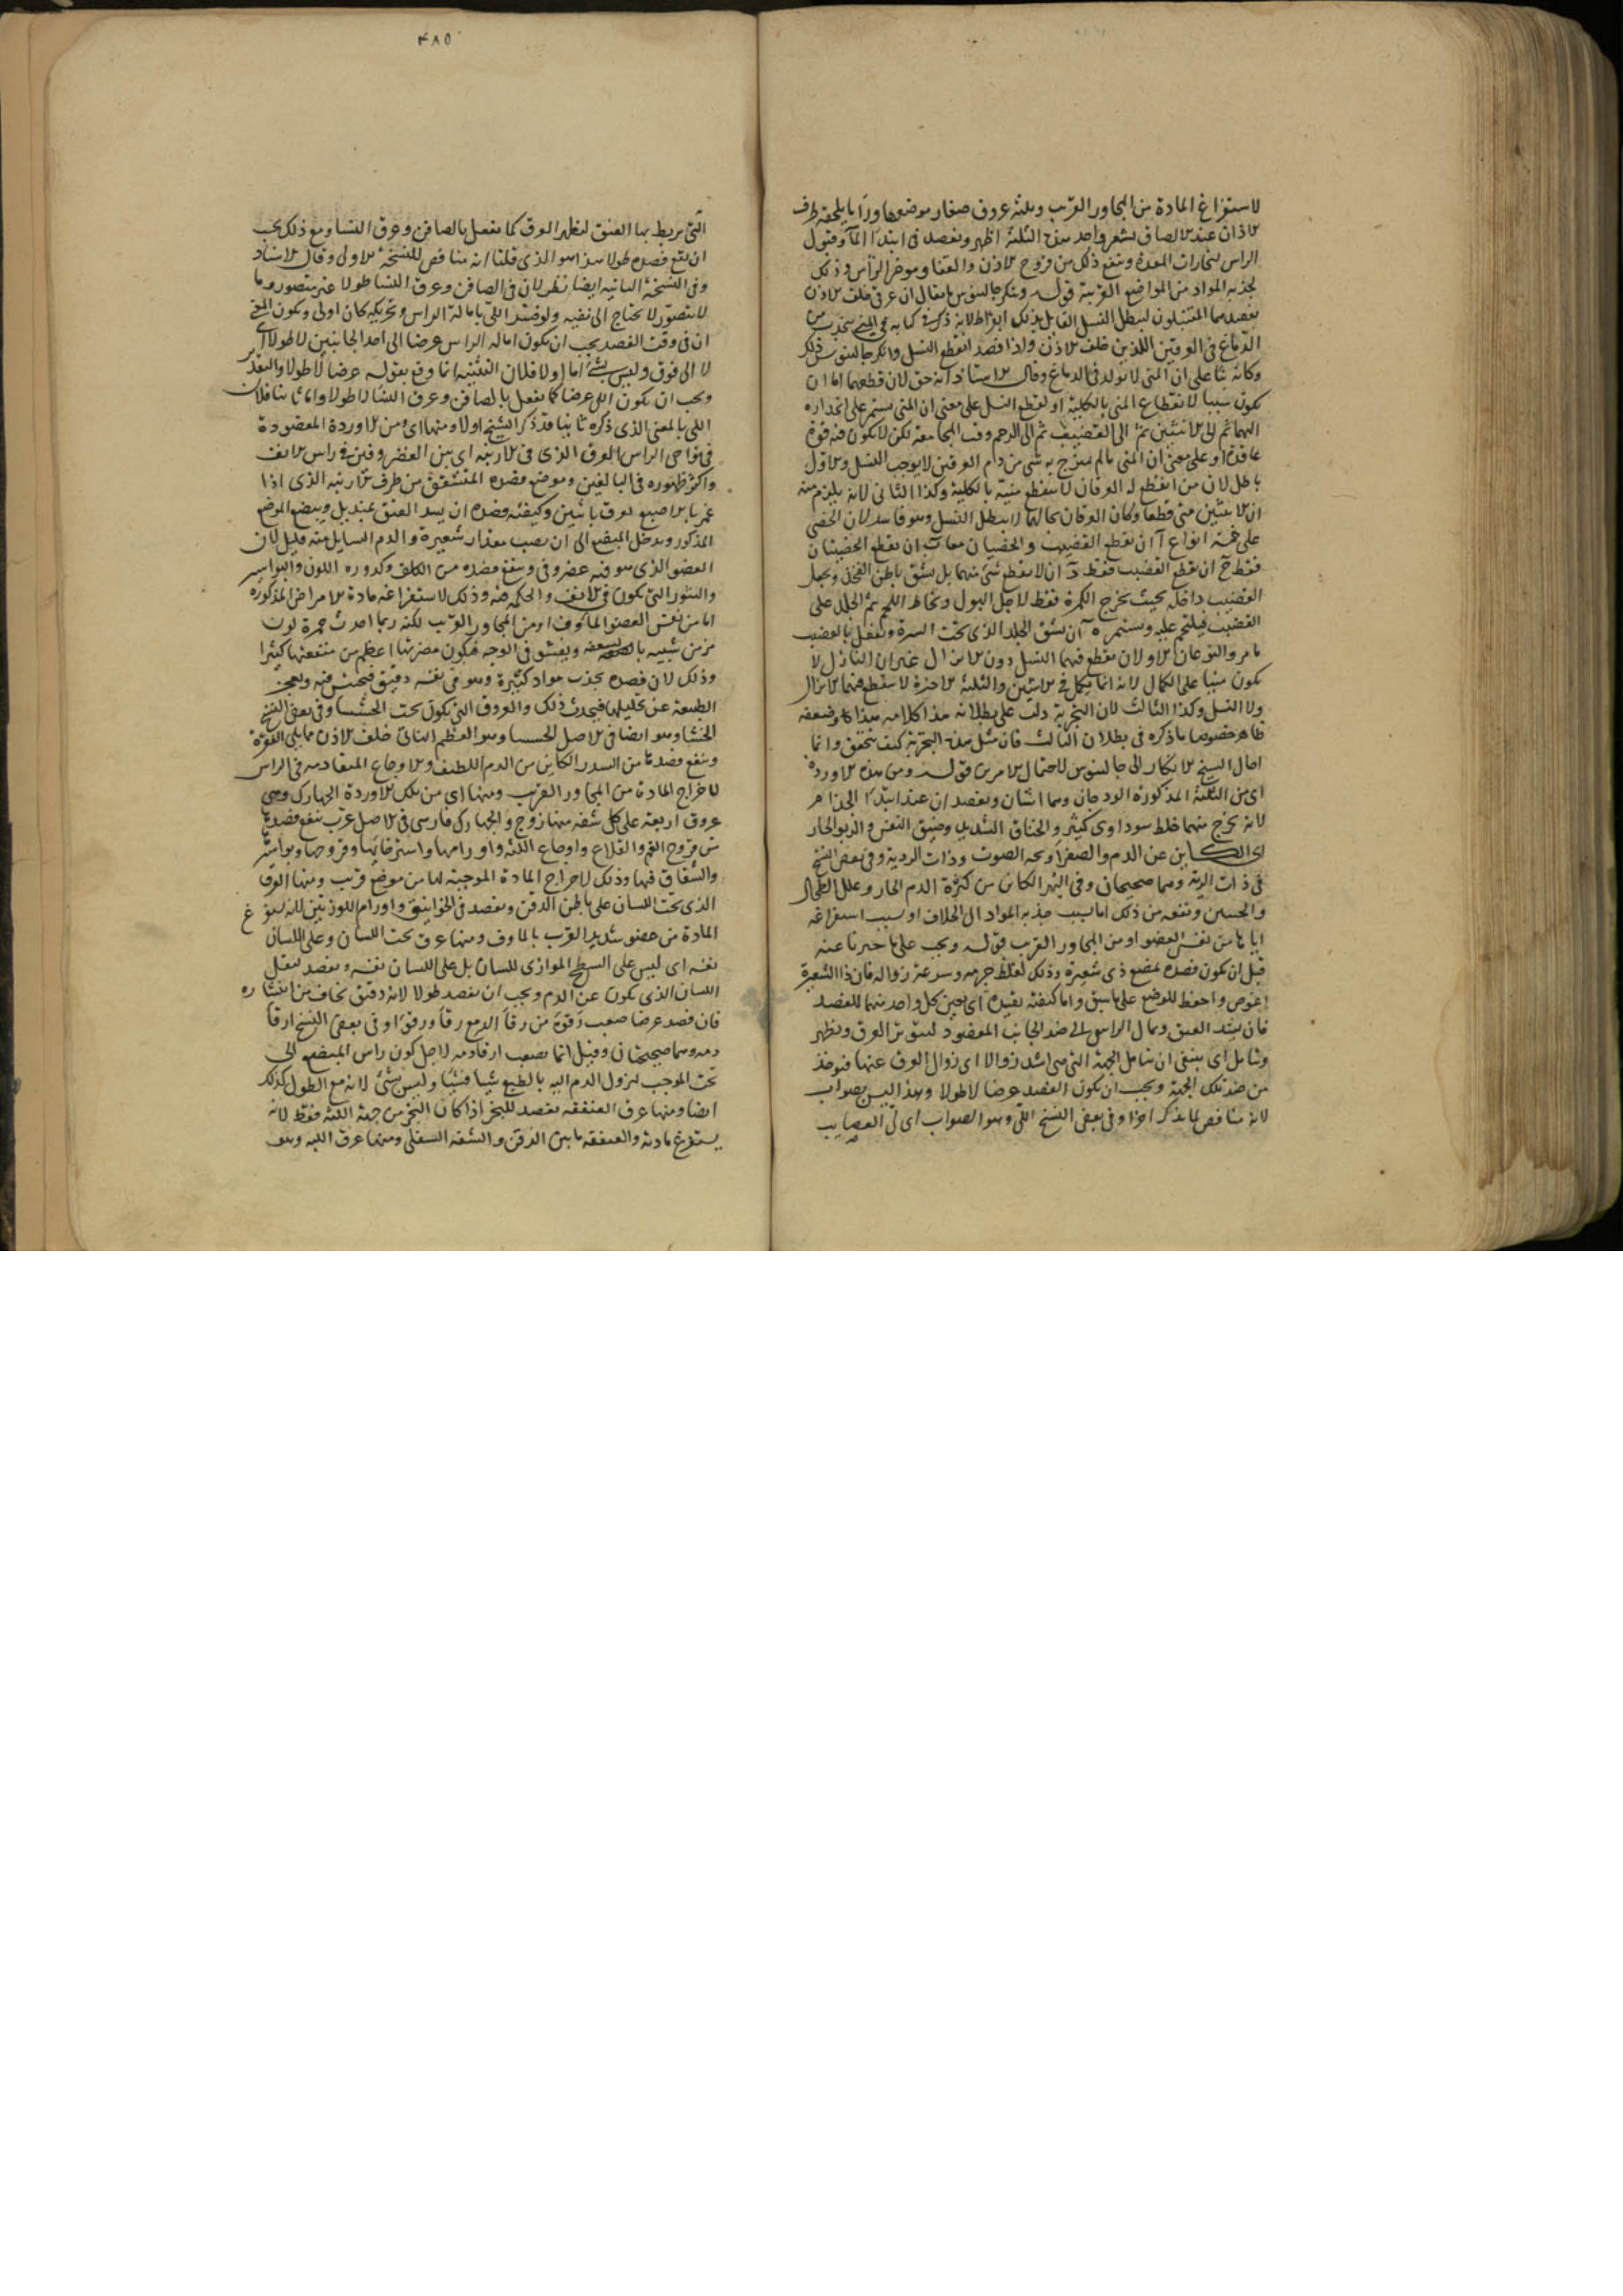 لاستفراغ المادة من المجاور القريب وثلثة عروق صغار موضعها وراء ما يلحقه طرف
الاذان عند الالصاق بشعر واحد من الثلثة اظهر ويفصد في ابتداء الماء وقبول
الراس لبخارات المعدة وينفع ذلك من قروح الاذن والقفا وموخر الراس وذلك
لجذبه المواد من المواضع القريبة قوله وينكر جالينوس ما يقال ان عرقي خلف الاذن
يفصدهما المتبتلون ليبطل النسل القايل بذلك ابقراط لانه ذكر في كتابه في المني
الدماغ في العرقين اللذين خلف الاذن واذا فصد انقطع النسل وانكر جالينوس ذلك
وكانه بناء على ان المني لا يولد في الدماغ وقال الاستاذ انه حق لان قطعهما اما ان
يكون سببا لانقطاع المني بالكلية او لقطع النسل على معنى ان المني يستمر على انحداره
اليهما ثم الى الانثيين ثم الى القضيب ثم الى الرحم وقت المجامعة لكن لا يكون فيه قوة
عاقدة او على معنى ان المني ما لم يمتزج به شي من دم العرقين لا يوجب النسل والاول
باطل لان من انقطع له العرقان لا ينقطع منيه بالكلية وكذا الثاني لانه يلزم منه
ان الانثيين متى قطعا وكان العرقان بحالهما لا يبطل النسل وهو فاسد لان الخصي
على خمسة انواع آ ان يقطع القضيب والخصيان معا ب ان يقطع الخصيتان
فقط ج ان يقطع القضيب فقط د ان لا يقطع شي منهما بل يشق باطن الفخذ ويجعل
القضيب داخله بحيث يخرج الكمرة فقط لاجل البول ويخاط اللحم ثم الجلد على
القضيب فيلتحم عليه ويستمر ه ان يشق الجلد الذي تحت السرة ويفعل بالقضيب
ما مر والنوعان الاولان يقطع فيهما النسل دون الانزال غير ان النازل لا
يكون منيا على الكمال لانه انما يكمل في الانثيين والثلثة الاخيرة لا ينقطع فيهما الانزال
ولا النسل وكذا الثالث لان التجربة دلت على بطلانه هذا كلامه بهذا وضعفه
ظاهر خصوصا ما ذكره في بطلان الثالث فان مثل هذه التجربة كيف يتحقق وانما
احال الشيخ الانكار الى جالينوس لاحتمال الامرين قوله ومن هذه الاوردة
اي من الثلثة المذكورة الودجان وهما اثنان ويفصدان عند ابتداء الجذام
لانه يخرج منهما خلط سوداوي كثير والخناق الشديد وضيق النفس والربو الحار
اي الكاين عن الدم والصفراء وبحه الصوت وذات الردية وفي بعض النسخ
في ذات الرية وهما صحيحان وفي البهر الكاين من كثرة الدم الحار وعلل الطحال
والجنبين ونفعه من ذلك اما بسبب جذبه المواد الى الخلاف او بسبب استفراغه
اياها من نفس العضو او من المجاور القريب قوله ويجب على ما خبرنا عنه
قبل ان يكون فصده بمبضع ذي شعيرة وذلك لغلظ جرمه وسرعة زواله فان ذا الشعيرة
اغوص واحفظ للوضع على ما سبق واما كيفية تقييده اي تعيين كل واحد منهما للفصد
فان يشد العنق ويمال الراس الى ضد الجانب المفصود ليتوتر العرق ويظهر
ويتامل اي ينبغي ان يتامل الجهة التي هي اشد زوالا اي زوال العرق عنها فيوخذ
من ضد تلك الجهة ويجب ان يكون الفصد عرضا لا طولا وهذا ليس بصواب
لانه مناقض لما يذكر اخرا وفي بعض النسخ اللي وهو الصواب اي لي العصايب
٤٨٥
التي يربط بها العنق ليظهر العرق كما يفعل بالصافن وعرق النسا ومع ذلك يجب
ان يقع فصده طولا هذا هو الذي قلنا انه مناقض للنسخة الاولى وقال الاستاذ
وفي النسخة الثانية ايضا نظر لان في الصافن وعرق النسا طولا غير متصور وما
لا يتصور لا يحتاج الى نفيه ولو فسر اللي بامالة الراس وتحريكه كان اولى ويكون المعنى
ان في وقت الفصد يجب ان يكون امالة الراس عرضا الى احد الجانبين لا طولا اي
لا الى فوق وليس بشي اما اولا فلان التشبيه انما وقع بقوله عرضا لا طولا والتقدير
ويجب ان يكون اللي عرضا كما يفعل بالصافن وعرق النسا لا طولا واما ثانيا فلان
اللي بالمعنى الذي ذكره ثانيا قد ذكر الشيخ اولا ومنها اي ومن الاوردة المفصودة
في نواحي الراس العرق الذي في الارنبة اي بين الغضروفين في راس الانف
واكثر ظهوره في البالغين وموضع فصده المتشقق من طرف الارنبة الذي اذا
غمز بالاصبع تفرق باثنين وكيفية فصده ان يشد العنق بمنديل ويبضع الموضع
المذكور ويدخل المبضع الى ان يصيب مقدار شعيرة والدم السايل منه قليل لان
العضو الذي هو فيه غضروفي وينفع فصده من الكلف وكدورة اللون والبواسير
والبثور التي تكون في الانف والحكة فيه وذلك لاستفراغه مادة الامراض المذكورة
اما من نفس العضو الماوف او من المجاور القريب لكنه ربما احدث حمرة لون
مزمن شبيه بالسعفة ويفشو في الوجه فيكون مضرتها اعظم من منفعتها كثيرا
وذلك لان فصده يجذب مواد كثيرة وهو في نفسه دقيق فيحتبس فيه ويعجز
الطبيعة عن تحليلها فيحدث ذلك والعروق التي تكون تحت الخششا وفي بعض النسخ
الخشا وهو ايضا في الاصل الخششا وهو العظم الناتئ خلف الاذن مما يلي النقرة
وينفع فصدها من السدر الكاين من الدم اللطيف والاوجاع المتقادمه في الراس
لاخراج المادة من المجاور القريب ومنها اي من تلك الاوردة الجهارك وهي
عروق اربعة على كل شفة منها زوج والجهارك فارسي في الاصل عرب ينفع فصدها
من قروح الفم والقلاع واوجاع اللثة واورامها واسترخائها وقروحها وبواسير
والشقاق فيها وذلك لاخراج المادة الموجبة لها من موضع قريب ومنها العرق
الذي تحت اللسان على باطن الذقن ويفصد في الخوانيق واورام اللوزتين لانه يستفرغ
المادة من عضو شديد القرب بالماوف ومنها عرق تحت اللسان وعلى اللسان
نفسه اي ليس على السطح الموازي للسان بل على اللسان نفسه ويفصد لثقل
اللسان الذي يكون عن الدم ويجب ان يفصد طولا لانه دقيق يخاف من انبثاره
فان فصد عرضا صعب رقوه من رقا الدمع رقأ ورقوءا وفي بعض النسخ ارقا
دمه وهما صحيحان وقيل انما يصعب ارقا دمه لاجل كون راس المبضع الى
تحت الموجب لنزول الدم اليه بالطبع شيئا فشيئا وليس بشي لانه مع الطول كذلك
ايضا ومنها عرق العنفقة يفصد للبخر اذا كان البخر من جهة اللثة فقط لانه
يستفرغ مادته والعنفقة ما بين الذقن والشفة السفلى ومنها عرق اللبة وهو